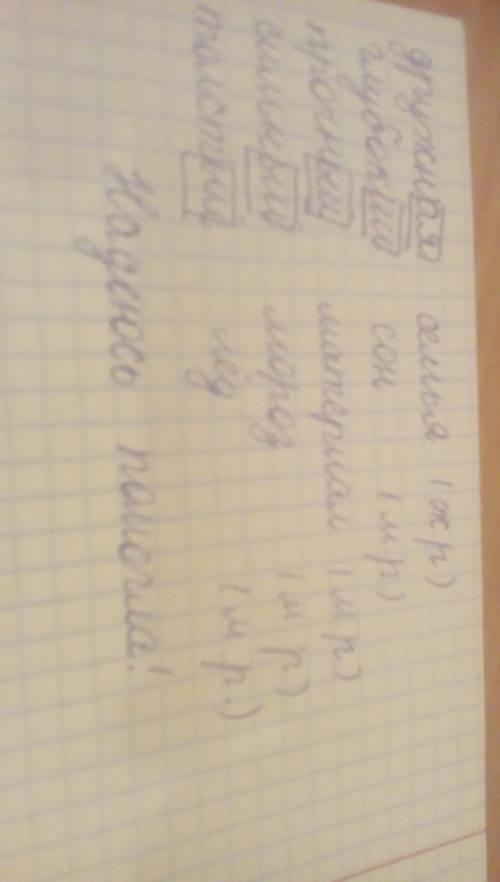 дружная семья (ж р)
глубокий сон (м р)
прочный материал (м р)
сильный мороз (м р)
толстый лед (м р.)
Надеюсь помогла!